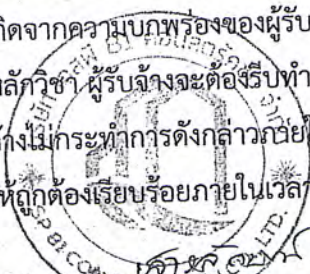 กิดจากความบกพร่องของผู้รับ
ลักวิชา ผู้รับจ้างจะต้องรีบทำ
างไม่กระทำการดังกล่าวภายใ
ห้ถูกต้องเรียบร้อยภายในเวลา